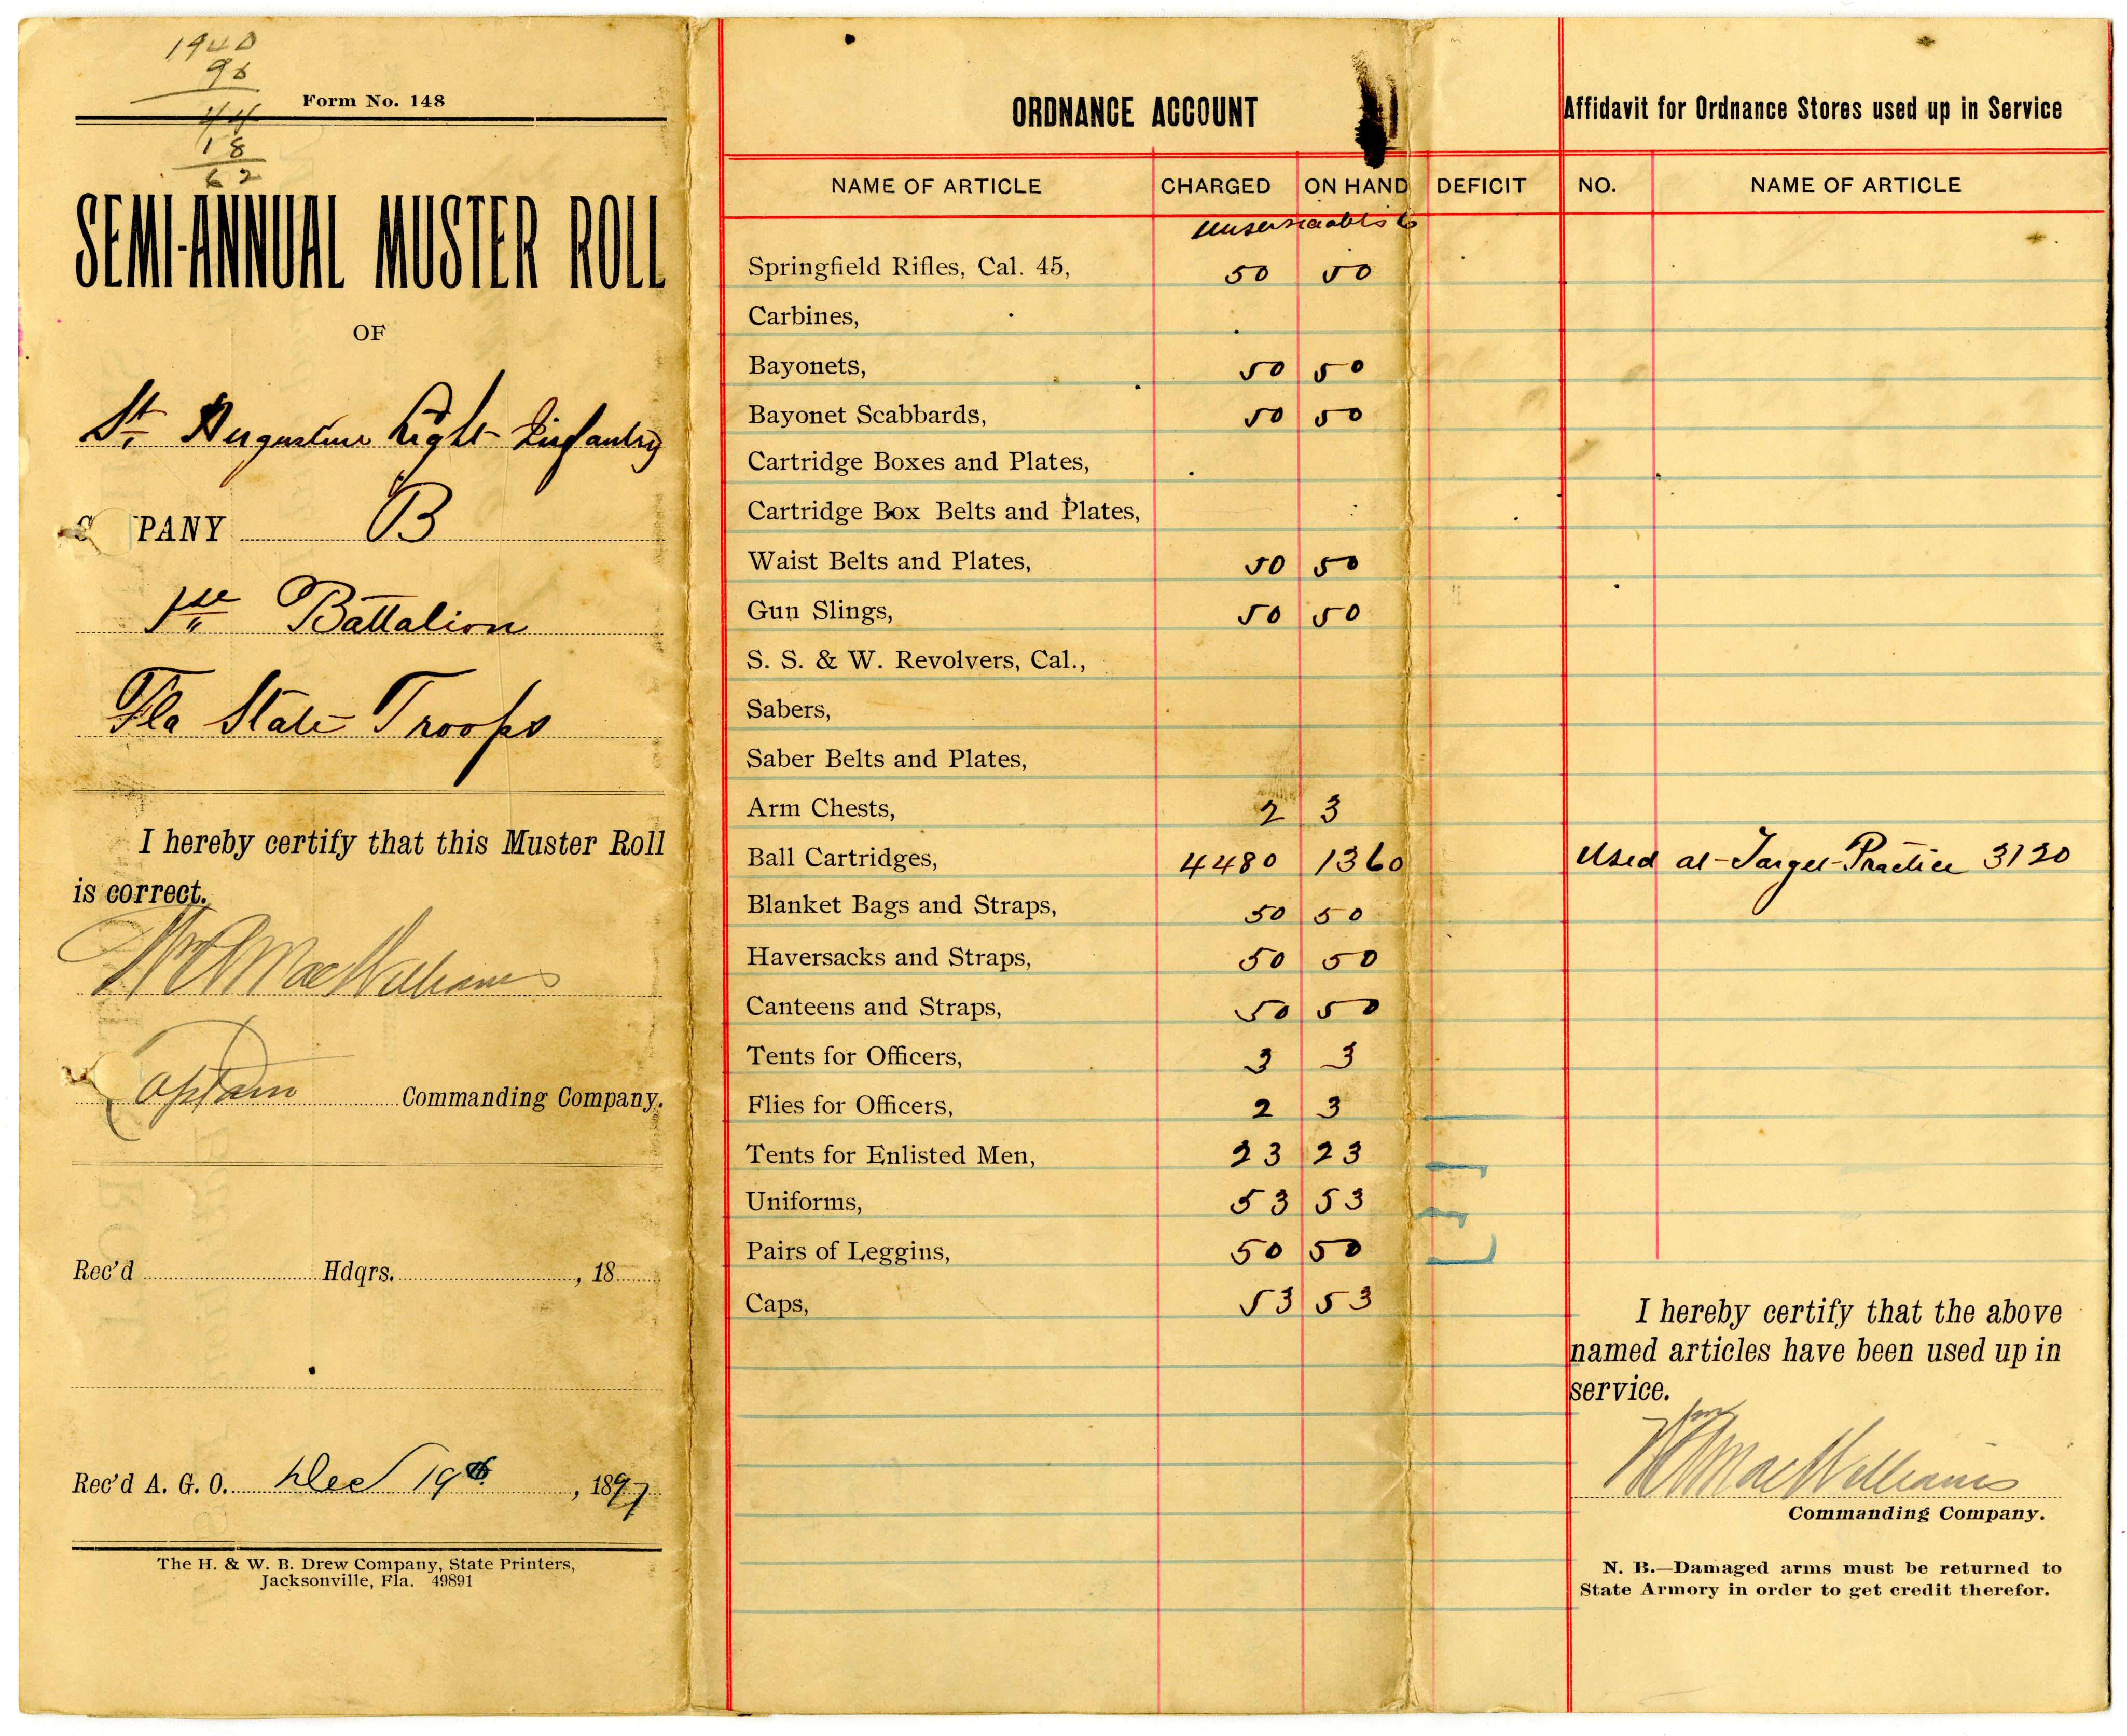 1940
96
44
18
62
Form No. 148
SEMI-ANNUAL MUSTER ROLL
OF
St. Augustine Light Infantry
PANY B
1st Battalion
Fla State Troops
I hereby certify that this Muster Roll
is correct.
Wm A MacWilliams
Captain Commanding Company.
Rec'd Hdqrs. , 18
Rec'd A. G. O. Dec 19th , 1897
The H. & W. B. Drew Company, State Printers,
Jacksonville, Fla. 49891
ORDNANCE ACCOUNT
NAME OF ARTICLE CHARGED ON HAND DEFICIT
Unserviceable 6
Springfield Rifles, Cal. 45, 50 50
Carbines,
Bayonets, 50 50
Bayonet Scabbards, 50 50
Cartridge Boxes and Plates,
Cartridge Box Belts and Plates,
Waist Belts and Plates, 50 50
Gun Slings, 50 50
S. S. & W. Revolvers, Cal.,
Sabers,
Saber Belts and Plates,
Arm Chests, 2 3
Ball Cartridges, 4480 1360
Blanket Bags and Straps, 50 50
Haversacks and Straps, 50 50
Canteens and Straps, 50 50
Tents for Officers, 3 3
Flies for Officers, 2 3
Tents for Enlisted Men, 23 23
Uniforms, 53 53
Pairs of Leggins, 50 50
Caps, 53 53
Affidavit for Ordnance Stores used up in Service
NO. NAME OF ARTICLE
Used at Target Practice 3120
I hereby certify that the above
named articles have been used up in
service.
Wm A MacWilliams
Commanding Company.
N. B.—Damaged arms must be returned to
State Armory in order to get credit therefor.